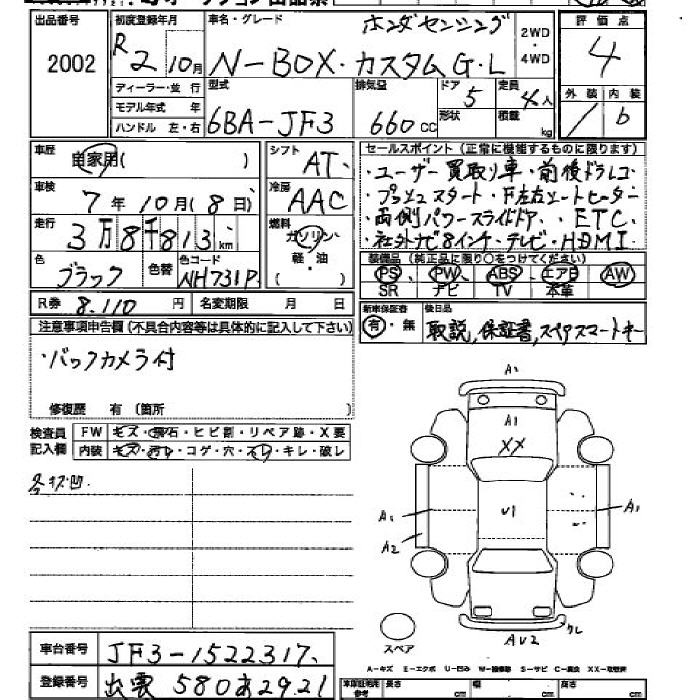 出品番号
2002
初度登録年月
R2 10月
車名・グレード
ホンダセンシング
N-BOX・カスタムG・L
2WD
・
4WD
評価点
4
外装 内装
b
ディーラー・並 行
モデル年式 年
ハンドル 左・右
型式
6BA-JF3
排気量
660cc
ドア 5
形状
定員 4人
積載 kg
車歴
自家用( )
シフト
AT
車検
7年 10月(8日)
冷房
AAC
走行
3万8千813km
燃料
ガソリン・
軽・油
( )
色
ブラック
色替
色コード
NH731P
R券 8,110 円
名変期限 月 日
セールスポイント(正常に機能するものに限ります)
・ユーザー買取り車・前後ドラレコ
・プッシュスタート・F左右シートヒーター
・両側パワースライドドア、・ETC
・社外ナビ8インチ・テレビ・HDMI
装備品(純正品に限り○をつけてください)
PS・PW・ABS・エアB・AW
SR ナビ TV 本革
新車保証書
有・無
後日品
取説,保証書,スペアスマートキー
注意事項申告欄(不具合内容等は具体的に記入して下さい)
・バックカメラ付
修復歴 有(箇所 )
検査員
記入欄
FW キズ・飛石・ヒビ割・リペア跡・X要
内装 キズ・汚レ・コゲ・穴・スレ・キレ・破レ
各キズ凹.
A2
A1
XX
U1
A1
A2
A1
AU2
スペア
A-キズ E-エクボ U-凹み W-補修跡 S-サビ C-腐食 XX-取替済
車台番号 JF3-1522317
登録番号 出雲 580あ2921
車庫証明用
参考
長さ cm
幅 cm
高さ cm